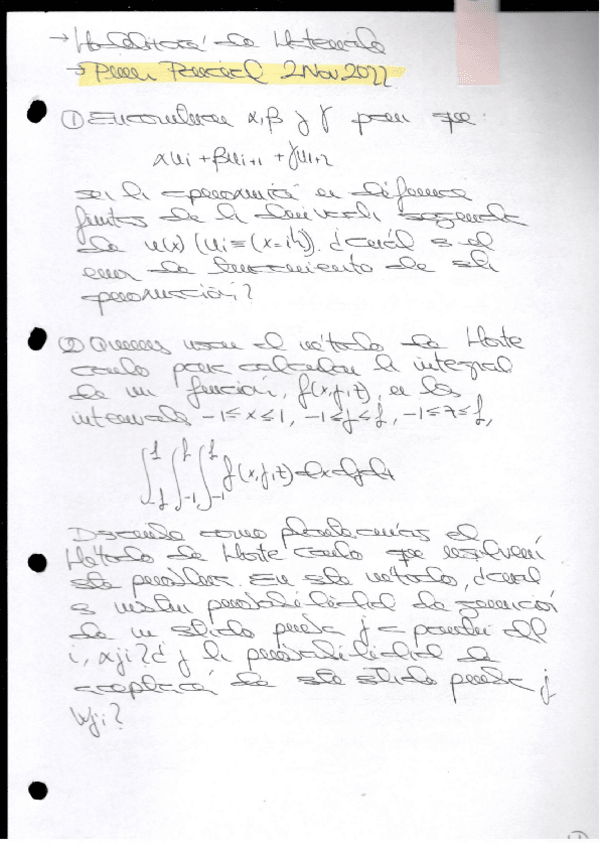 → Modelización de Materiales
→ Primer Parcial 2 Nov 2022
① Encontrar α, β y γ para que
αui + βui+1 + γui+2
sea la aproximación en diferencias
finitas de la derivada segunda
de u(x) (ui = (x=ih)). ¿Cuál es el
error de truncamiento de esta
aproximación?
② Queremos usar el método de Monte
Carlo para calcular la integral
de una función, f(x,y,z), en los
intervalos -1≤x≤1, -1≤y≤1, -1≤z≤1,
∫-1 1 ∫-1 1 ∫-1 1 f(x,y,z) dx dy dz
Describe como plantearías el
Método de Monte Carlo que resolvería
este problema. En este método, ¿cuál
es la probabilidad de generación
de un estado prueba j a partir del
i, αji? ¿y la probabilidad de
aceptación de este estado prueba j
Wji?